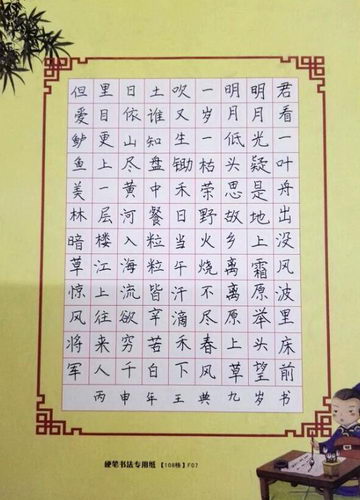 君看一叶舟出没风波里床前
明月光疑是地上霜原举头望
明月低头思故乡离离原上草
一岁一枯荣野火烧不尽春风
吹又生锄禾日当午汗滴禾下
土谁知盘中餐粒粒皆辛苦白
日依山尽黄河入海流欲穷千
里目更上一层楼江上往来人
但爱鲈鱼美林暗草惊风将军
丙申年王典九岁书
硬笔书法专用纸【108格】F07